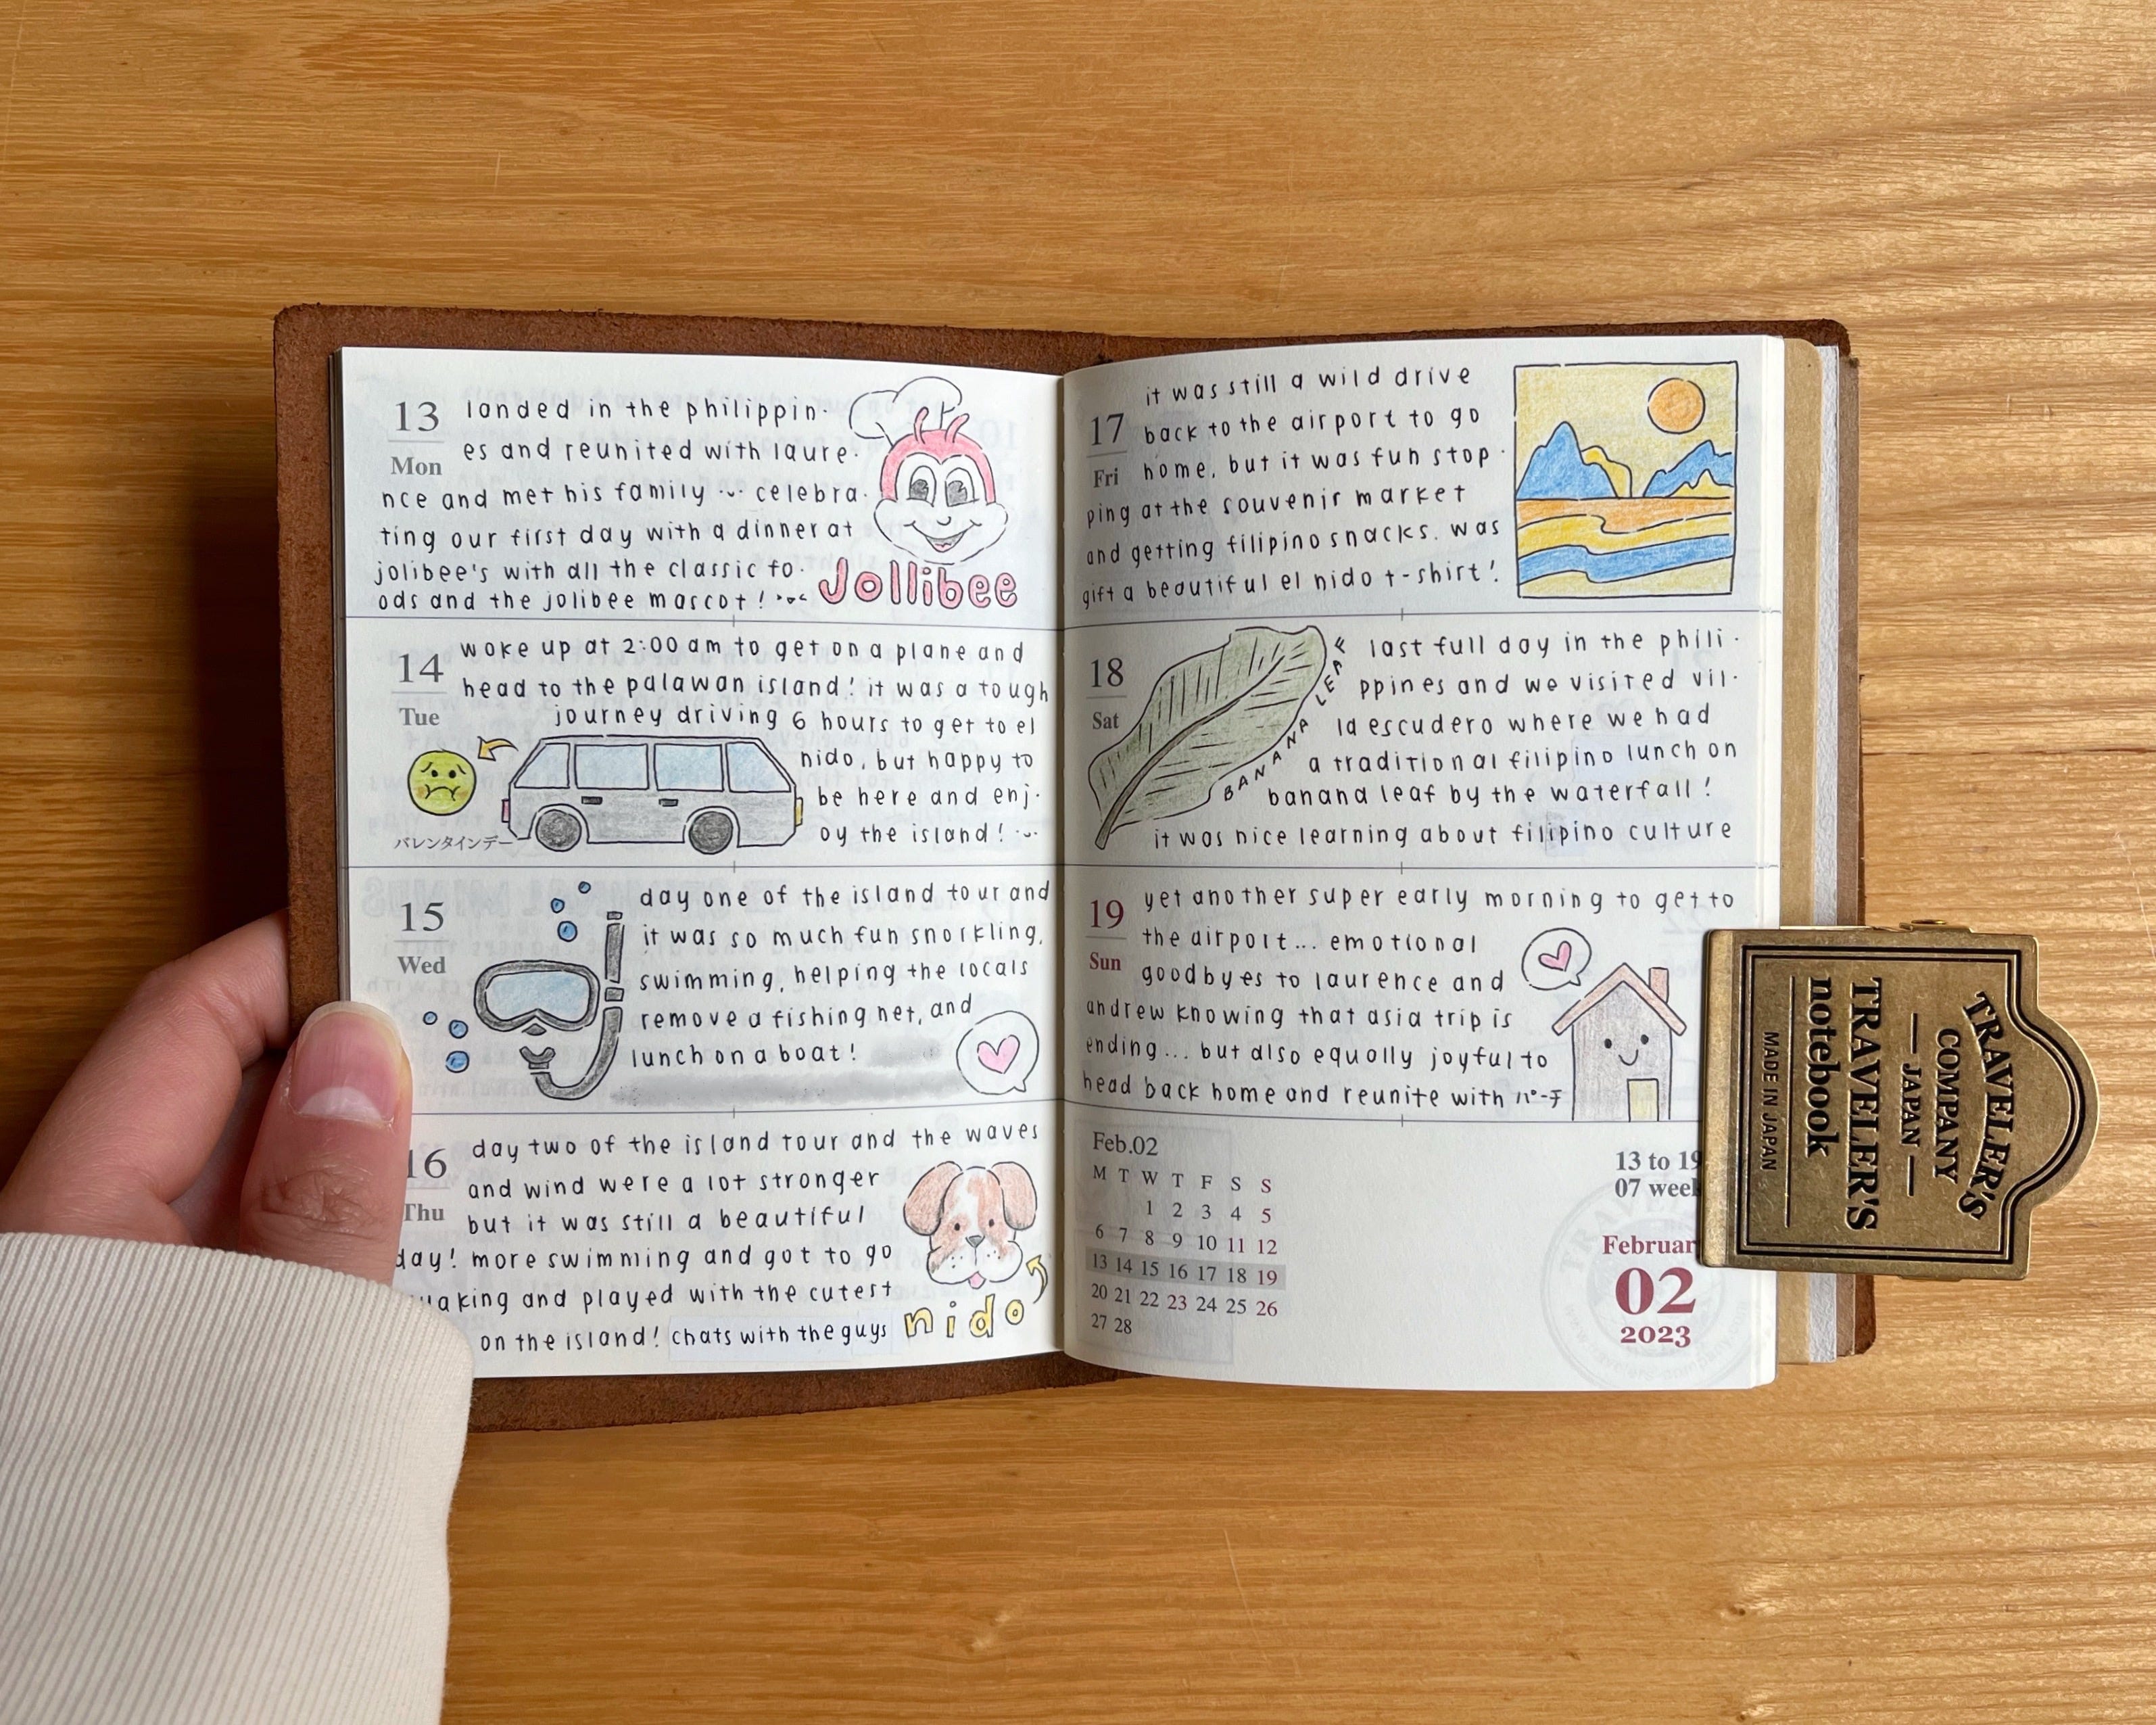 13
Mon
landed in the philippin-
es and reunited with laure-
nce and met his family celebra-
ting our first day with a dinner at
jolibee's with all the classic fo-
ods and the jolibee mascot!
Jollibee
14
Tue
woke up at 2:00 am to get on a plane and
head to the palawan island! it was a tough
journey driving 6 hours to get to el
nido, but happy to
be here and enj-
oy the island!
バレンタインデー
15
Wed
day one of the island tour and
it was so much fun snorkling,
swimming, helping the locals
remove a fishing net, and
lunch on a boat!
16
Thu
day two of the island tour and the waves
and wind were a lot stronger
but it was still a beautiful
day! more swimming and got to go
and played with the cutest
on the island! chats with the guys
nido
17
Fri
it was still a wild drive
back to the airport to go
home, but it was fun stop-
ping at the souvenir market
and getting filipino snacks. was
gift a beautiful el nido t-shirt!
18
Sat
BANANA LEAF
last full day in the phili-
ppines and we visited vil-
la escudero where we had
a traditional filipino lunch on
banana leaf by the waterfall!
it was nice learning about filipino culture
19
Sun
yet another super early morning to get to
the airport... emotional
goodbyes to laurence and
andrew knowing that asia trip is
ending... but also equally joyful to
head back home and reunite with パーチ
Feb.02
M T W T F S S
1 2 3 4 5
6 7 8 9 10 11 12
13 14 15 16 17 18 19
20 21 22 23 24 25 26
27 28
13 to 19
07 week
Februar
02
2023
TRAVELER'S
COMPANY
— JAPAN —
TRAVELER'S
notebook
MADE IN JAPAN